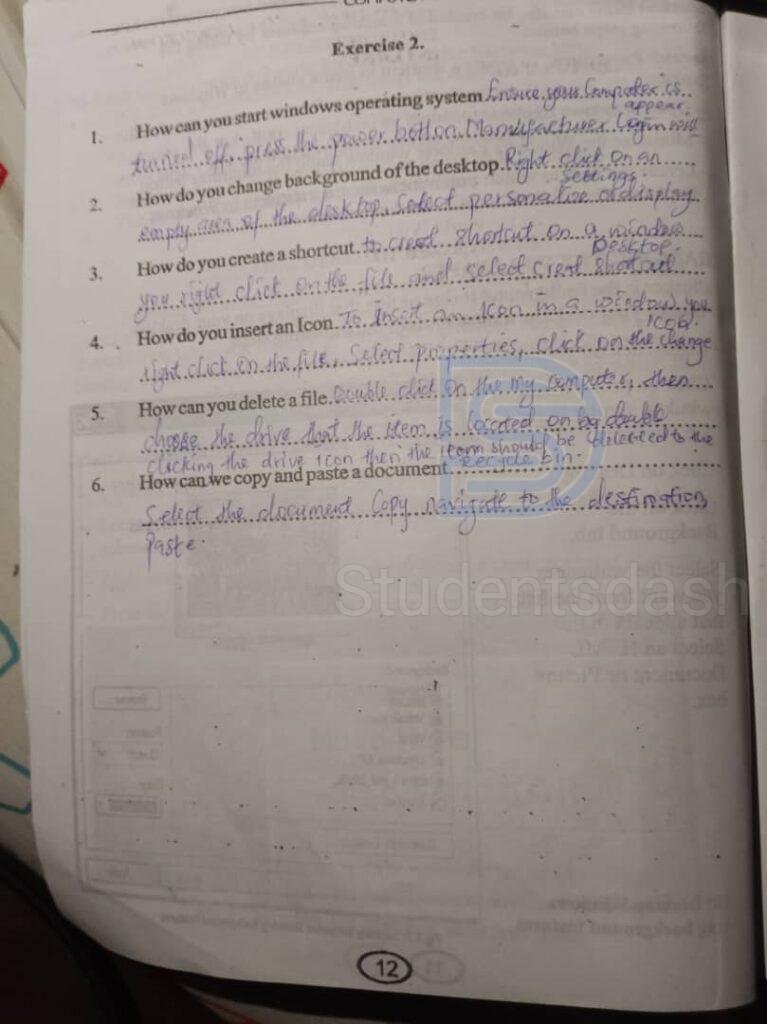 Exercise 2.
1. How can you start windows operating system Ensure your Computer is
appear
turned off. press the power botton. Manufacturer Login will
2. How do you change background of the desktop. Right click on an
Settings.
empty area of the desktop, Select personalize or display
3. How do you create a shortcut. to creat shortcut on a window
Desktop.
you right click on the file and select creat shortcut
4. How do you insert an Icon. To insert an Icon in a window you
Icon.
right click on the file, Select properties, click on the change
5. How can you delete a file. Double click on the my computer, then
choose the drive that the item is located on by double
clicking the drive icon then the item should be deleted to the
6. How can we copy and paste a document
recycle bin.
Select the document Copy navigate to the destination
Paste.
Studentsdash
12